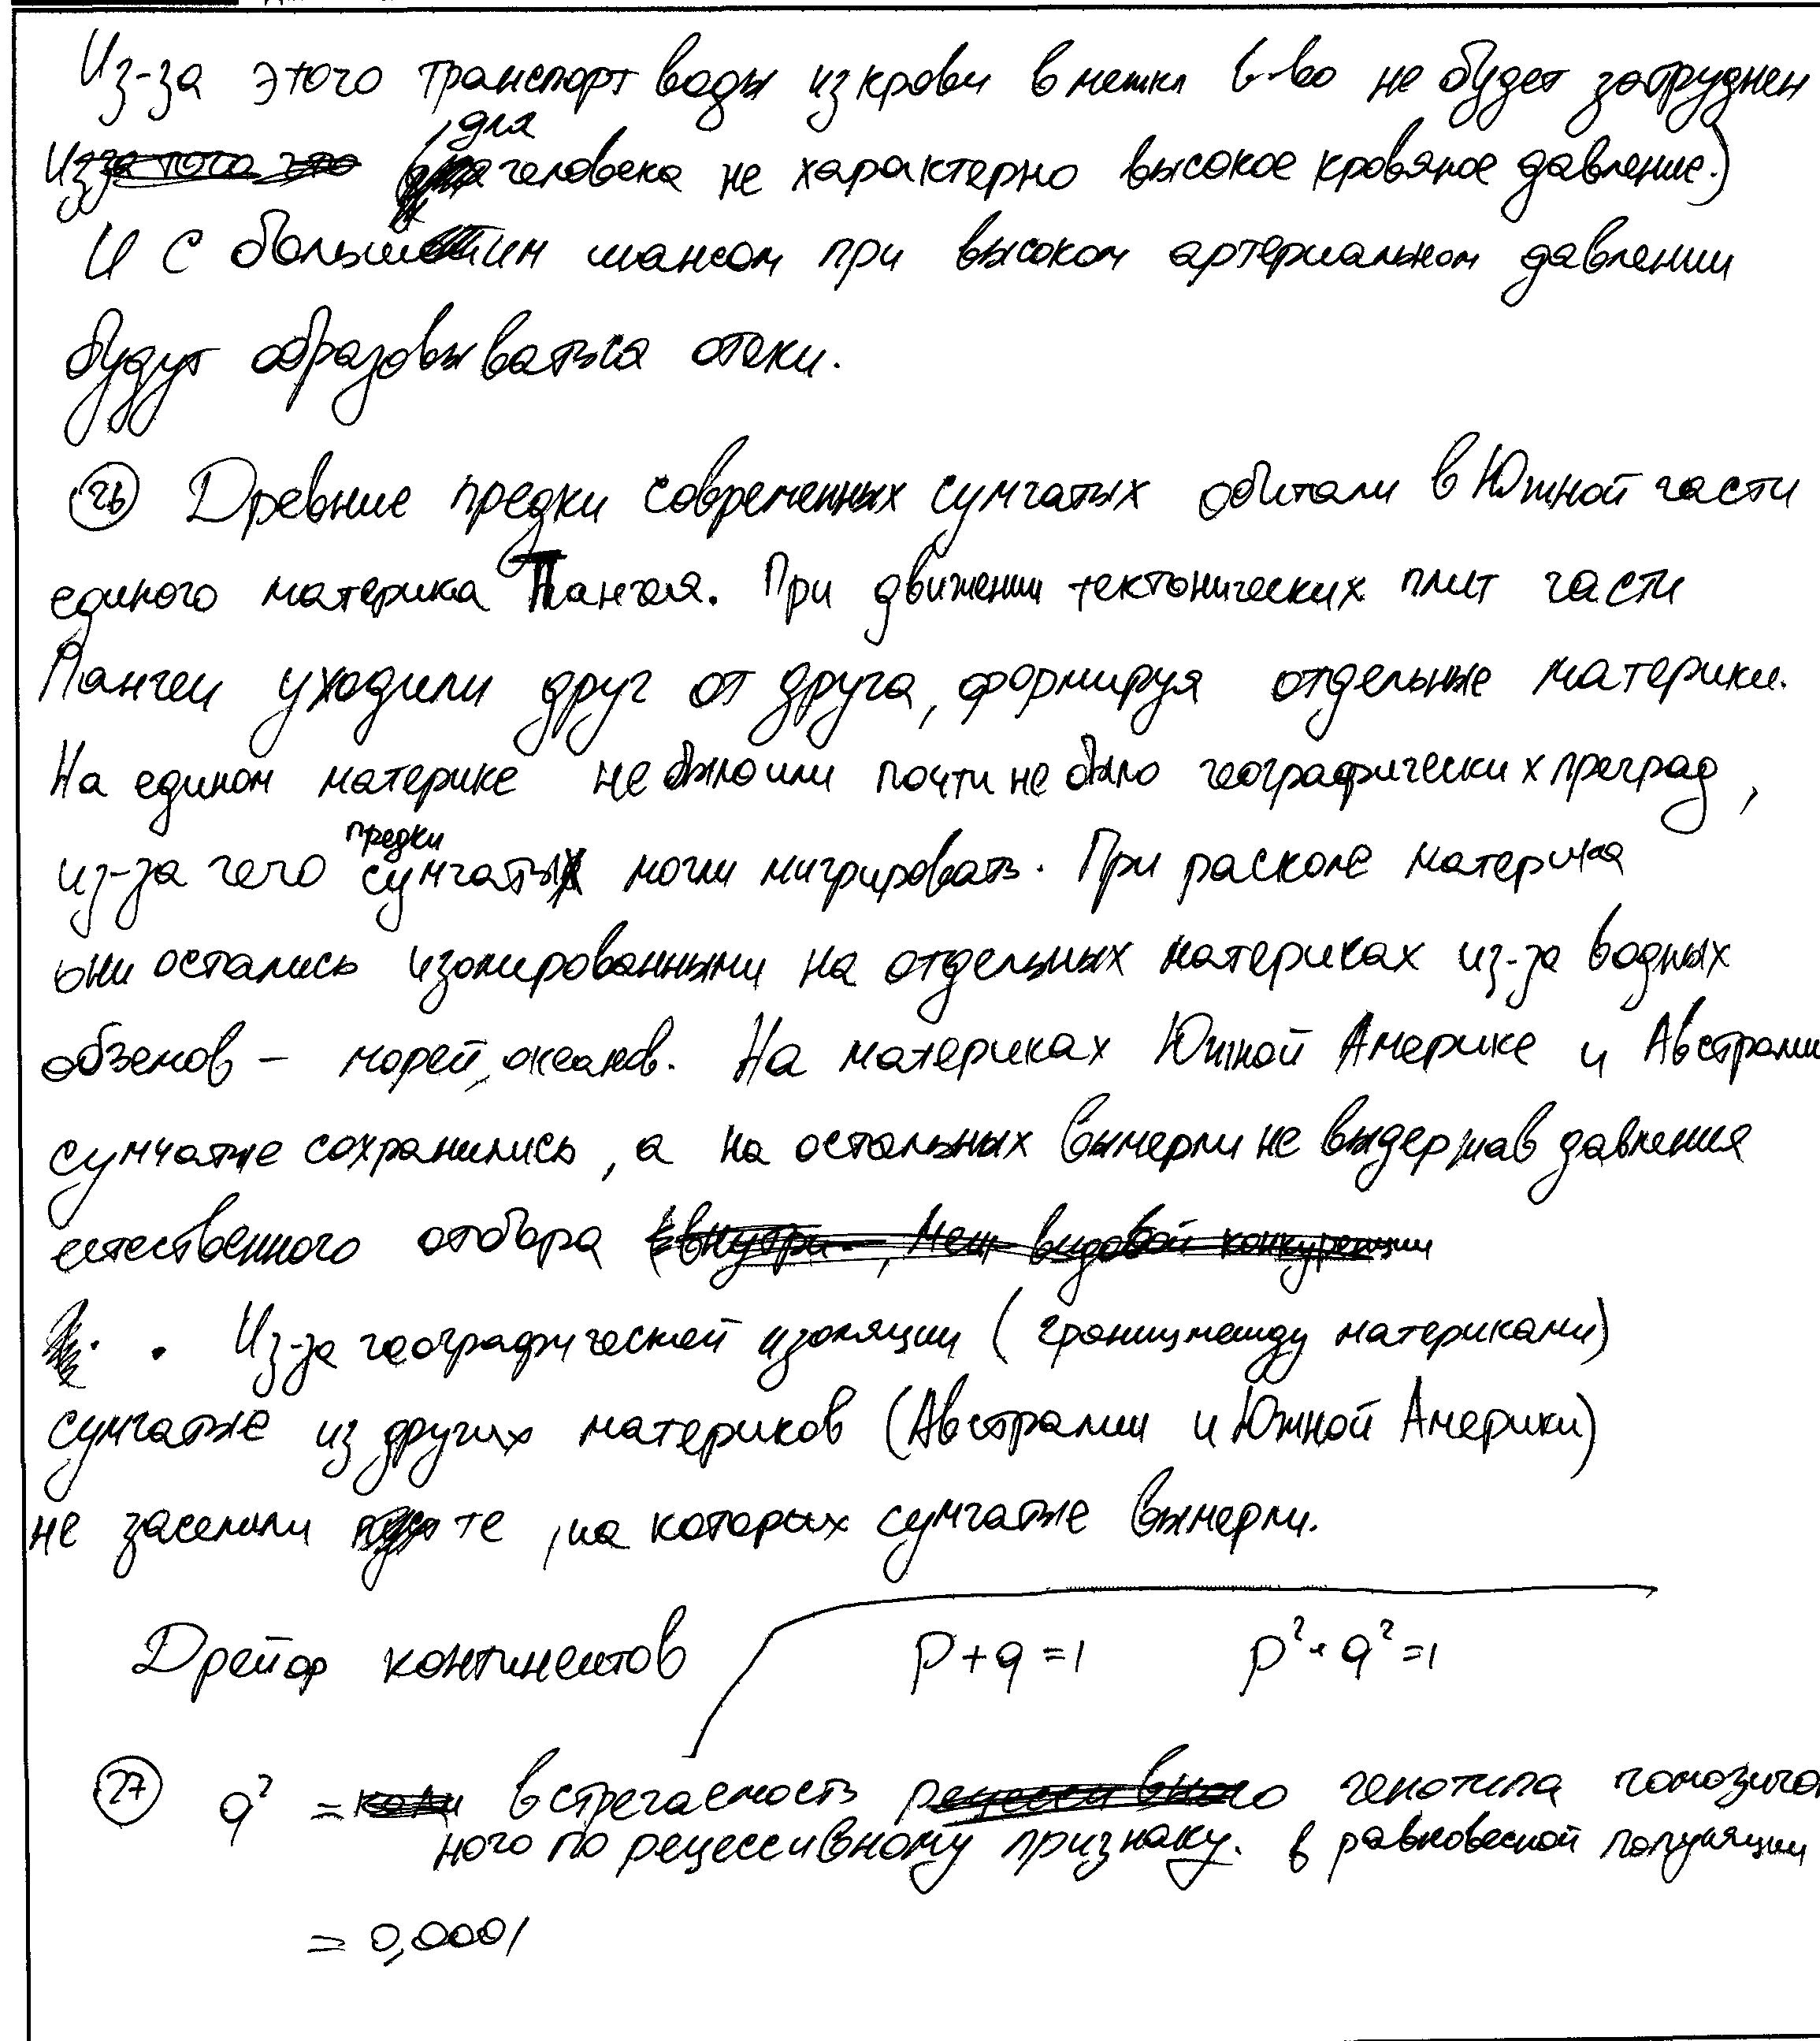 Из-за этого транспорт воды из крови в межкл в-во не будет затруднен
(для человека не характерно высокое кровяное давление.)
И с большим шансом при высоком артериальном давлении
будут образовываться отеки.
26 Древние предки современных сумчатых обитали в Южной части
единого материка Пангея. При движении тектонических плит части
Пангеи уходили друг от друга, формируя отдельные материки.
На едином материке не было или почти не было географических преград,
из-за чего предки сумчатых могли мигрировать. При расколе материка
они остались изолированными на отдельных материках из-за водных
обземов - морей, океанов. На материках Южной Америке и Австралии
сумчатые сохранились, а на остальных вымерли не выдержав давления
естественного отбора
. Из-за географической изоляции (границ между материками)
сумчатые из других материков (Австралии и Южной Америки)
не заселили те, на которых сумчатые вымерли.
Дрейф континентов
p+q=1 p²+q²=1
27 q² = встречаемость генотипа гомозигот
ного по рецессивному признаку. в равновесной популяции
= 0,0001